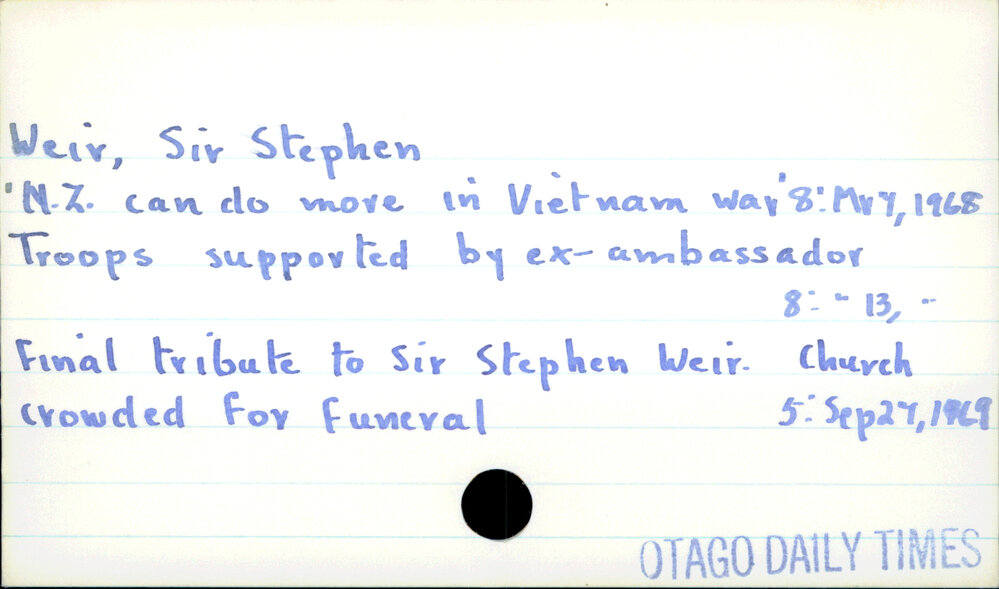 Weir, Sir Stephen
'N.Z. can do more in Vietnam war' 8: Mr 7, 1968
Troops supported by ex-ambassador
8: " 13, "
Final tribute to Sir Stephen Weir. Church
crowded for funeral 5: Sep 27, 1969
OTAGO DAILY TIMES